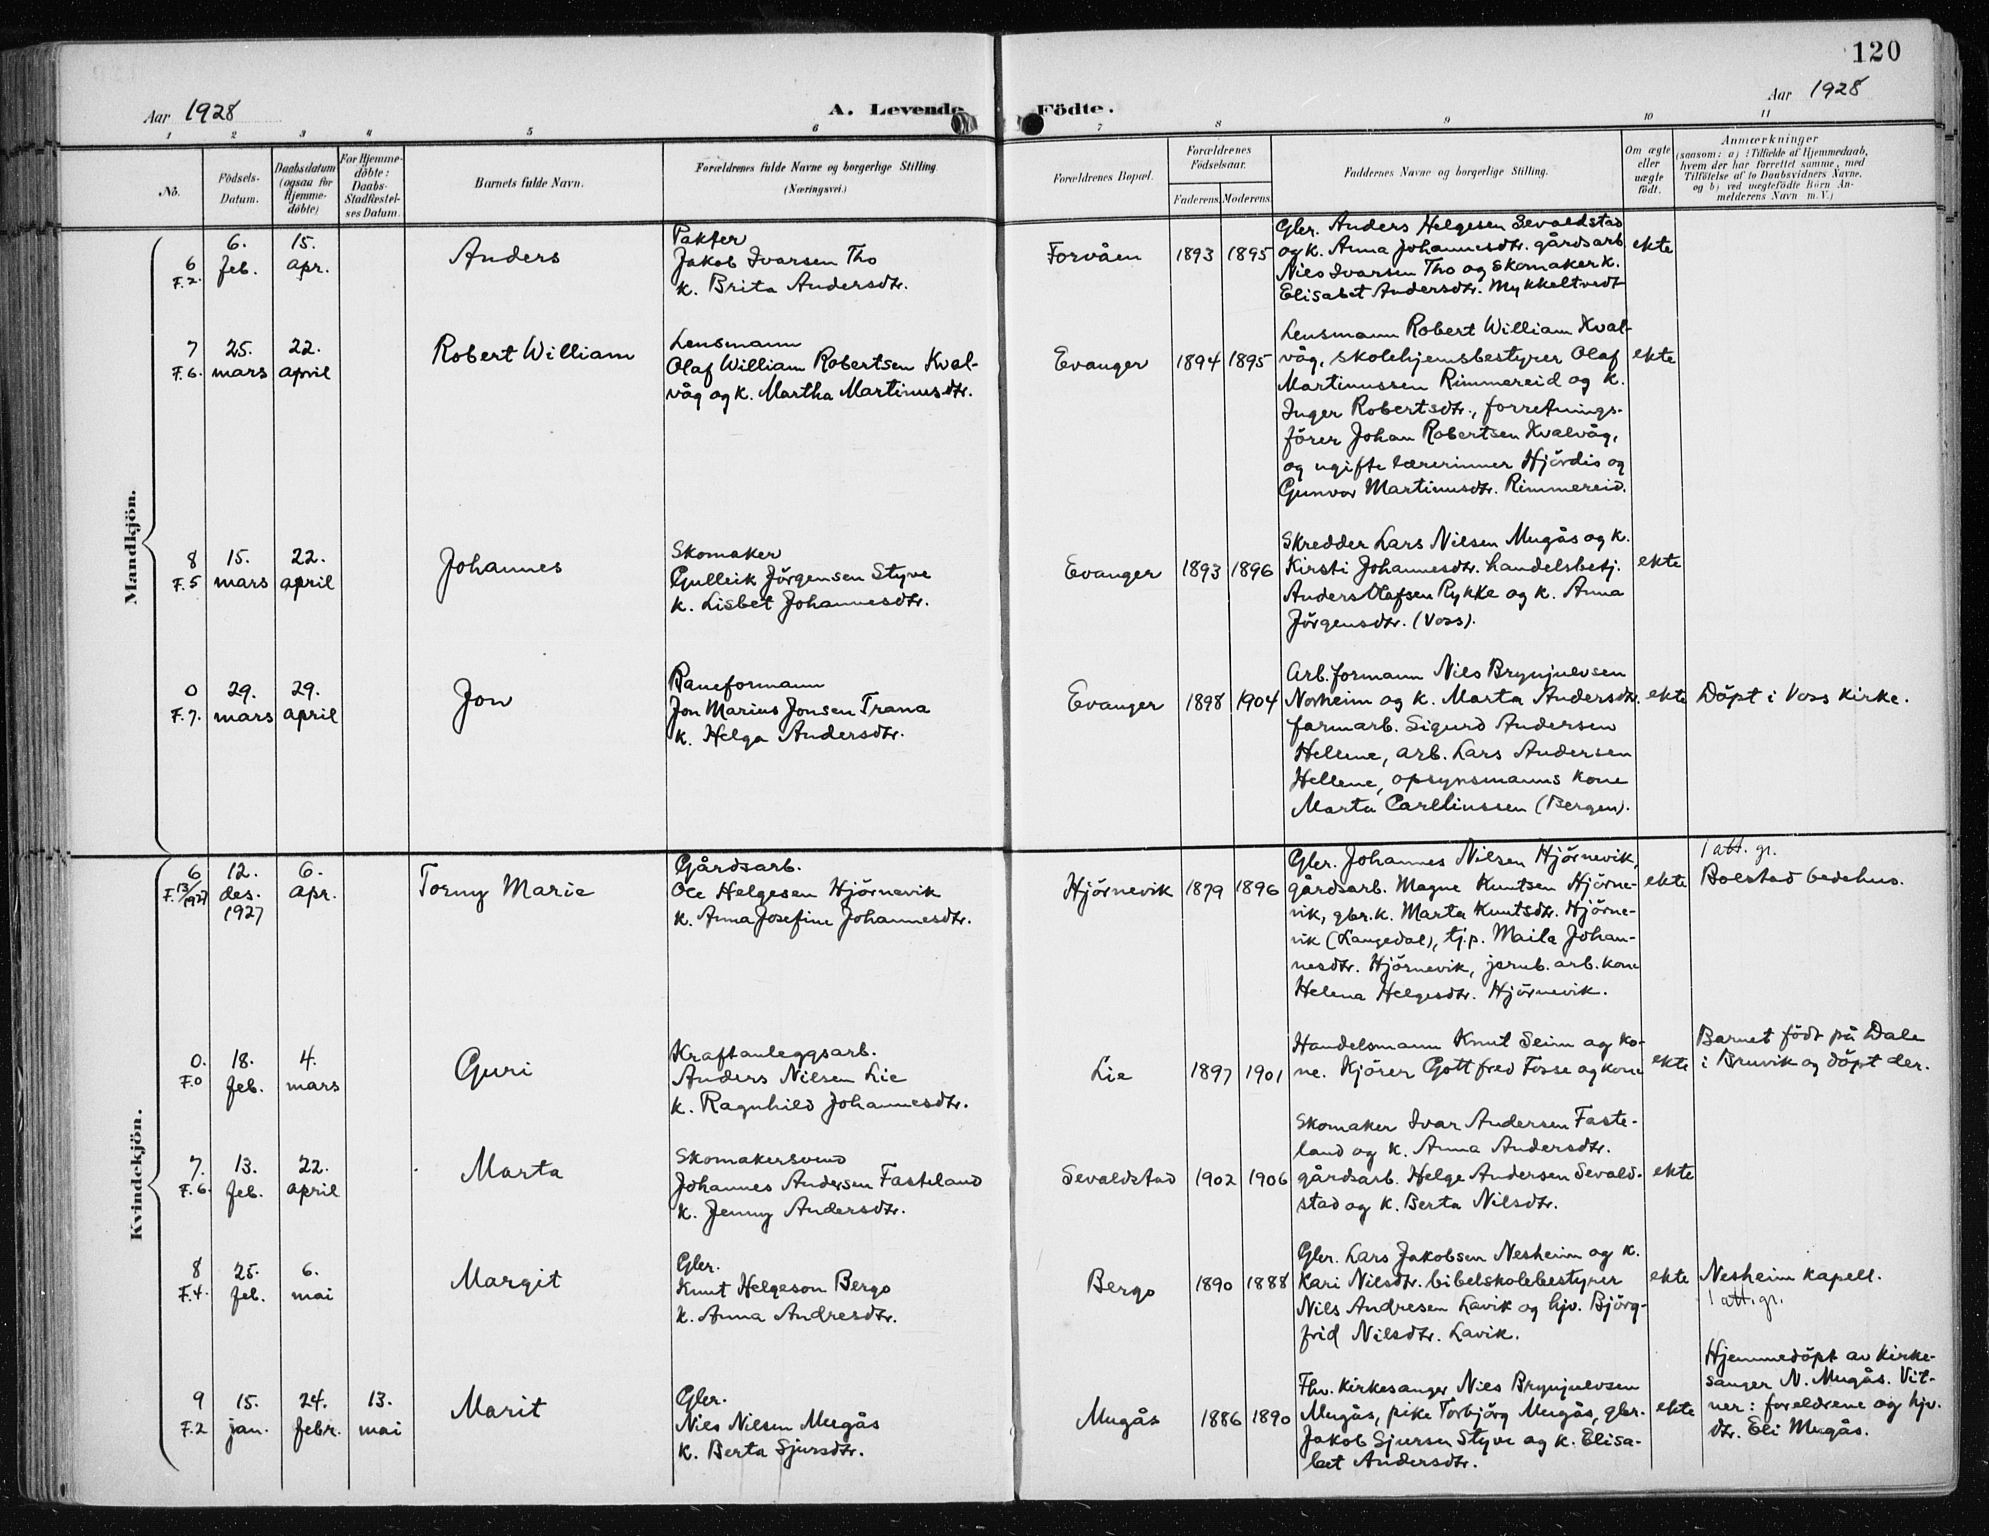 120
Aar 1928
A. Levende Födte.
Aar 1928
1 2 3 4 5 6 7 8 9 10 11
No.
Födsels-
Datum.
Daabsdatum
(ogsaa for
Hjemme-
döbte)
For Hjemme-
döbte:
Daabs-
Stadfæstel-
ses Datum.
Barnets fulde Navn.
Forældrenes fulde Navne og borgerlige Stilling.
(Næringsvei.)
Forældrenes Bopæl.
Forældrenes
Födselsaar.
Faderens. Moderens.
Faddernes Navne og borgerlige Stilling.
Om ægte
eller
uægte
födt.
Anmærkninger
(saasom: a) i Tilfælde af Hjemmedaab,
hvem der har forrettet samme, med
Tilföielse af to Daabsvidners Navne,
og b) ved uægtefödte Börn An-
melderens Navn m. V.)
Mandkjön.
6
F.2.
6.
feb.
15.
apr.
Anders
Pakter
Jakob Ivarsen Tho
k. Brita Andersdtr.
Forvåen
1893
1895
Gbr. Anders Helgesen Sevaldstad
og k. Anna Johannesdtr. gårdsarb.
Nils Ivarsen Tho og skomaker k.
Elisabet Andersdtr. Mykkeltvedt
ekte
7
F.6.
25.
mars
22.
april
Robert William
Lensmann
Olaf William Robertsen Kval-
våg og k. Martha Martinusdtr.
Evanger
1894
1895
Lensmann Robert William Kval-
våg, skolehjemsbestyrer Olaf
Martinussen Rimmereid og k.
Inger Robertsdtr., forretnings-
förer Johan Robertsen Kvalvåg,
og ugifte lærerinner Hjördis og
Gunvor Martinusdtr. Rimmereid.
ekte
8
F.5
15.
mars
22.
april
Johannes
Skomaker
Gulleik Jörgensen Styve
k. Lisbet Johannesdtr.
Evanger
1893
1896
Skredder Lars Nilsen Mugås og k.
Kirsti Johannesdtr. handelsbetj.
Anders Olafsen Rykke og k. Anna
Jörgensdtr. (Voss).
ekte
0
F.7.
29.
mars
29.
april
Jon
Baneformann
Jon Marius Jonsen Trana
k. Helga Andersdtr.
Evanger
1898
1904
Arb.formann Nils Brynjulvsen
Norheim og k. Marta Andersdtr.
farmarb. Sigurd Andersen
Hellene, arb. Lars Andersen
Hellene, opsynsmanns kone
Marta Carlhinssen (Bergen).
ekte
Döpt i Voss kirke.
Kvindekjön.
6
F.13/1927
12.
des.
1927
6.
apr.
Torny Marie
Gårdsarb.
Ole Helgesen Hjörnevik
k. Anna Josefine Johannesdtr.
Hjörnevik
1879
1896
Gbr. Johannes Nilsen Hjörnevik,
gårdsarb. Magne Knutsen Hjörne-
vik, gbr.k. Marta Knutsdtr. Hjörne-
vik (Langedal), tj.p. Maila Johan-
nesdtr. Hjörnevik, jernb.arb.kone
Helena Helgesdtr. Hjörnevik.
ekte
1 att. gr.
Bolstad bedehus.
0.
F.0
18.
feb.
4.
mars
Guri
Kraftanleggsarb.
Anders Nilsen Lie
k. Ragnhild Johannesdtr.
Lie
1897
1901
Handelsmann Knut Seim og ko-
ne. Kjörer Gottfred Fosse og kone
ekte
Barnet födt på Dale
i Bruvik og döpt der.
7.
F.6.
13.
feb.
22.
april
Marta
Skomakersvend
Johannes Andersen Fasteland
k. Jenny Andersdtr.
Sevaldstad
1902
1906
Skomaker Ivar Andersen Faste-
land og k. Anna Andersdtr.
gårdsarb. Helge Andersen Sevald-
stad og k. Berta Nilsdtr.
ekte
8
F.4.
25.
feb.
6.
mai
Margit
Gbr.
Knut Helgeson Bergo
k. Anna Andresdtr.
Bergo
1890
1888
Gbr. Lars Jakobsen Nesheim og k.
Kari Nilsdtr. bibelskolebestyrer
Nils Andresen Lavik og hjv. Björg-
frid Nilsdtr. Lavik.
ekte
Nesheim kapell.
1 att.gr.
9
F.2
15.
jan.
24.
febr.
13.
mai
Marit
Gbr.
Nils Nilsen Mugås
k. Berta Sjursdtr.
Mugås
1886
1890
Fhv. kirkesanger Nils Brynjulvsen
Mugås, pike Torbjörg Mugås, gbr.
Jakob Sjursen Styve og k. Elisa-
bet Andersdtr.
ekte
Hjemmedöpt av kirke-
sanger N. Mugås. Vit-
ner: foreldrene og hjv.
dtr. Eli Mugås.